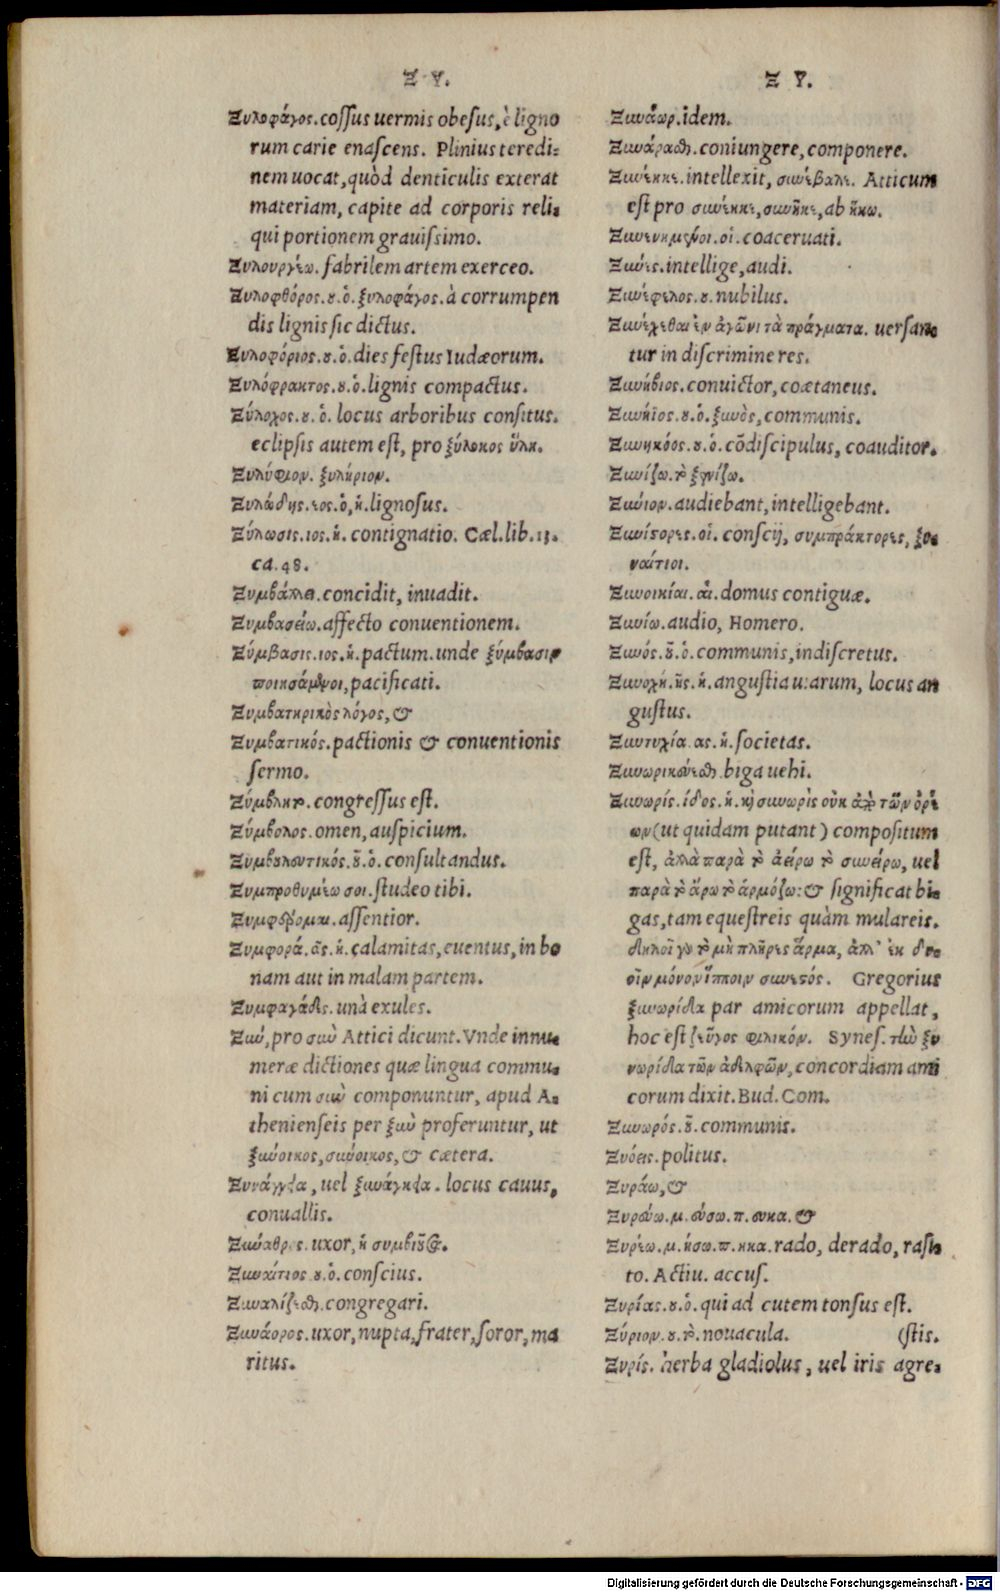 Ξ Υ.
Ξυλοφάγος. cossus uermis obesus, è ligno
rum carie enascens. Plinius teredi-
nem uocat, quòd denticulis exterat
materiam, capite ad corporis reli-
qui portionem grauissimo.
Ξυλουργέω. fabrilem artem exerceo.
Ξυλοφθόρος. ου. ὁ. ξυλοφάγος. à corrumpen
dis lignis sic dictus.
Ξυλοφόριος. ου. ὁ. dies festus Iudæorum.
Ξυλόφρακτος. ου. ὁ. lignis compactus.
Ξύλοχος. ου. ὁ. locus arboribus consitus.
eclipsis autem est, pro ξύλοκος ὕλη.
Ξυλύφιον. ξυλήριον.
Ξυλώδης. εος. ὁ, ἡ. lignosus.
Ξύλωσις. ιος. ἡ. contignatio. Cæl. lib. 13.
ca. 48.
Ξυμβάλλει. concidit, inuadit.
Ξυμβασείω. affecto conuentionem.
Ξύμβασις. ιος. ἡ. pactum. unde ξύμβασιν
ποιησάμενοι, pacificati.
Ξυμβατηρικὸς λόγος, &
Ξυμβατικός. pactionis & conuentionis
sermo.
Ξύμβλητο. congressus est.
Ξύμβολος. omen, auspicium.
Ξυμβουλευτικός. οῦ. ὁ. consultandus.
Ξυμπροθυμέω σοι. studeo tibi.
Ξυμφέρομαι. assentior.
Ξυμφορά. ᾶς. ἡ. calamitas, euentus, in bo
nam aut in malam partem.
Ξυμφαγάδες. unà exules.
Ξυν, pro σὺν Attici dicunt. Vnde innu-
meræ dictiones quæ lingua commu-
ni cum σὺν componuntur, apud A-
thenienseis per ξὺν proferuntur, ut
ξύνοικος, σύνοικος, & cætera.
Ξυνάγγεια, uel ξυνάγκεια. locus cauus,
conuallis.
Ξυναθρος. uxor, ἡ συμβιος.
Ξυναίτιος. ου. ὁ. conscius.
Ξυναλίζεσθαι. congregari.
Ξυνάορος. uxor, nupta, frater, soror, ma
ritus.
Ξ Υ.
Ξυνάωρ. idem.
Ξυνάρασθαι. coniungere, componere.
Ξυνέηκε. intellexit, συνέβαλε. Atticum
est pro συνέηκε, συνῆκε, ab ἥκω.
Ξυνενημένοι. οἱ. coaceruati.
Ξύνες. intellige, audi.
Ξυνέφελος. ου. nubilus.
Ξυνέχεσθαι ἐν ἀγῶνι τὰ πράγματα. uersan
tur in discrimine res.
Ξυνήβιος. conuictor, coætaneus.
Ξυνήϊος. ου. ὁ. ξυνὸς, communis.
Ξυνηκόος. ου. ὁ. cōdiscipulus, coauditor.
Ξυνίζω. τὸ ξενίζω.
Ξύνιον. audiebant, intelligebant.
Ξυνίστορες. οἱ. conscij, συμπράκτορες, ξυ-
ναίτιοι.
Ξυνοικίαι. αἱ. domus contiguæ.
Ξυνίω. audio, Homero.
Ξυνός. οῦ. ὁ. communis, indiscretus.
Ξυνοχή. ῆς. ἡ. angustia uiarum, locus an
gustus.
Ξυντυχία. ας. ἡ. societas.
Ξυνωρικεύεσθαι. biga uehi.
Ξυνωρίς. ίδος. ἡ. καὶ συνωρὶς οὐκ ἀπὸ τῶν ὀρέ
ων (ut quidam putant) compositum
est, ἀλλὰ παρὰ τὸ ἀείρω τὸ συνείρω, uel
παρὰ τὸ ἄρω τὸ ἁρμόζω: & significat bi-
gas, tam equestreis quàm mulareis.
δηλοῖ γὰρ τὸ μὴ πλῆρες ἅρμα, ἀλλ' ἐκ δυ-
οῖν μόνον ἵπποιν συνεστός. Gregorius
ξυνωρίδα par amicorum appellat,
hoc est ζεῦγος φιλικόν. Synes. τὴν ξυ
νωρίδα τῶν ἀδελφῶν, concordiam ami
corum dixit. Bud. Com.
Ξυνωρός. οῦ. communis.
Ξυόεις. politus.
Ξυράω, &
Ξυρεύω. μ. εύσω. π. ευκα. &
Ξυρέω. μ. ήσω. π. ηκα. rado, derado, rasi-
to. Actiu. accus.
Ξυρίας. ου. ὁ. qui ad cutem tonsus est.
Ξύριον. ου. τὸ. nouacula. (stis.
Ξυρίς. herba gladiolus, uel iris agre-
Digitalisierung gefördert durch die Deutsche Forschungsgemeinschaft - DFG